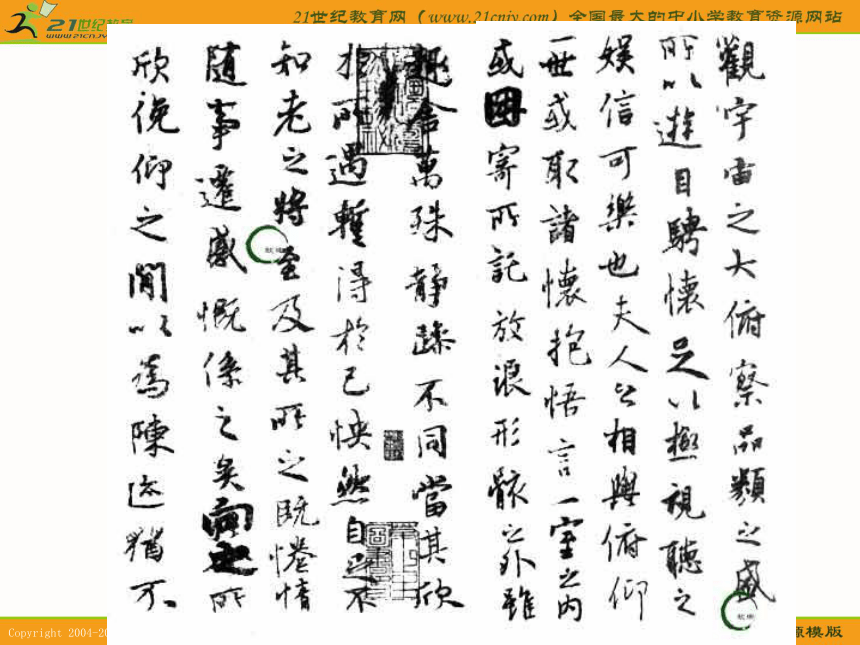 21世纪教育
21世纪教育网（www.21cnjy.com）全国最大的中小学教育资源网站
觀宇宙之大俯察品類之盛
所以遊目騁懷足以極視聽之
娛信可樂也夫人之相與俯仰
一世或取諸懷抱悟言一室之內
或因寄所託放浪形骸之外雖
趣舍萬殊靜躁不同當其欣
於所遇蹔得於己怏然自足不
知老之將至及其所之既惓情
隨事遷感慨係之矣向之所
欣俛仰之間以為陳迹猶不
Copyright 2004-20
源模版